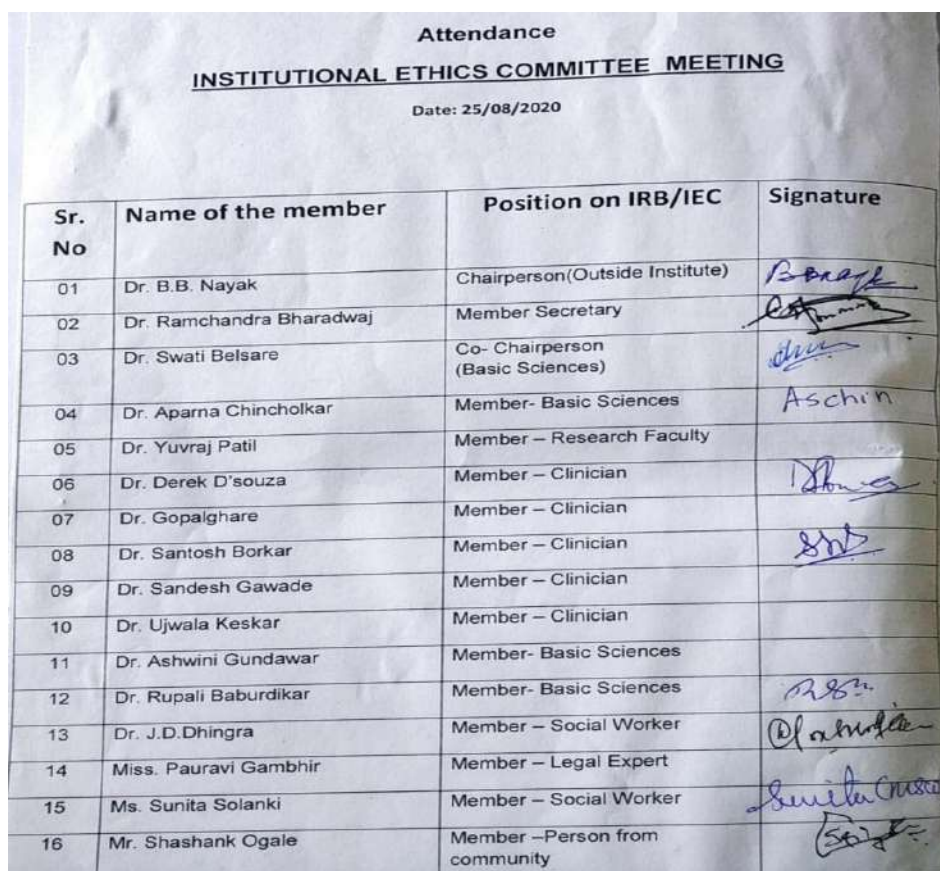 Attendance
INSTITUTIONAL ETHICS COMMITTEE MEETING
Date: 25/08/2020
Sr. No Name of the member Position on IRB/IEC Signature
01 Dr. B.B. Nayak Chairperson(Outside Institute)
02 Dr. Ramchandra Bharadwaj Member Secretary
03 Dr. Swati Belsare Co- Chairperson
(Basic Sciences)
04 Dr. Aparna Chincholkar Member- Basic Sciences Aschin
05 Dr. Yuvraj Patil Member – Research Faculty
06 Dr. Derek D'souza Member – Clinician
07 Dr. Gopalghare Member – Clinician
08 Dr. Santosh Borkar Member – Clinician
09 Dr. Sandesh Gawade Member – Clinician
10 Dr. Ujwala Keskar Member – Clinician
11 Dr. Ashwini Gundawar Member- Basic Sciences
12 Dr. Rupali Baburdikar Member- Basic Sciences
13 Dr. J.D.Dhingra Member – Social Worker
14 Miss. Pauravi Gambhir Member – Legal Expert
15 Ms. Sunita Solanki Member – Social Worker Sunita
16 Mr. Shashank Ogale Member –Person from
community